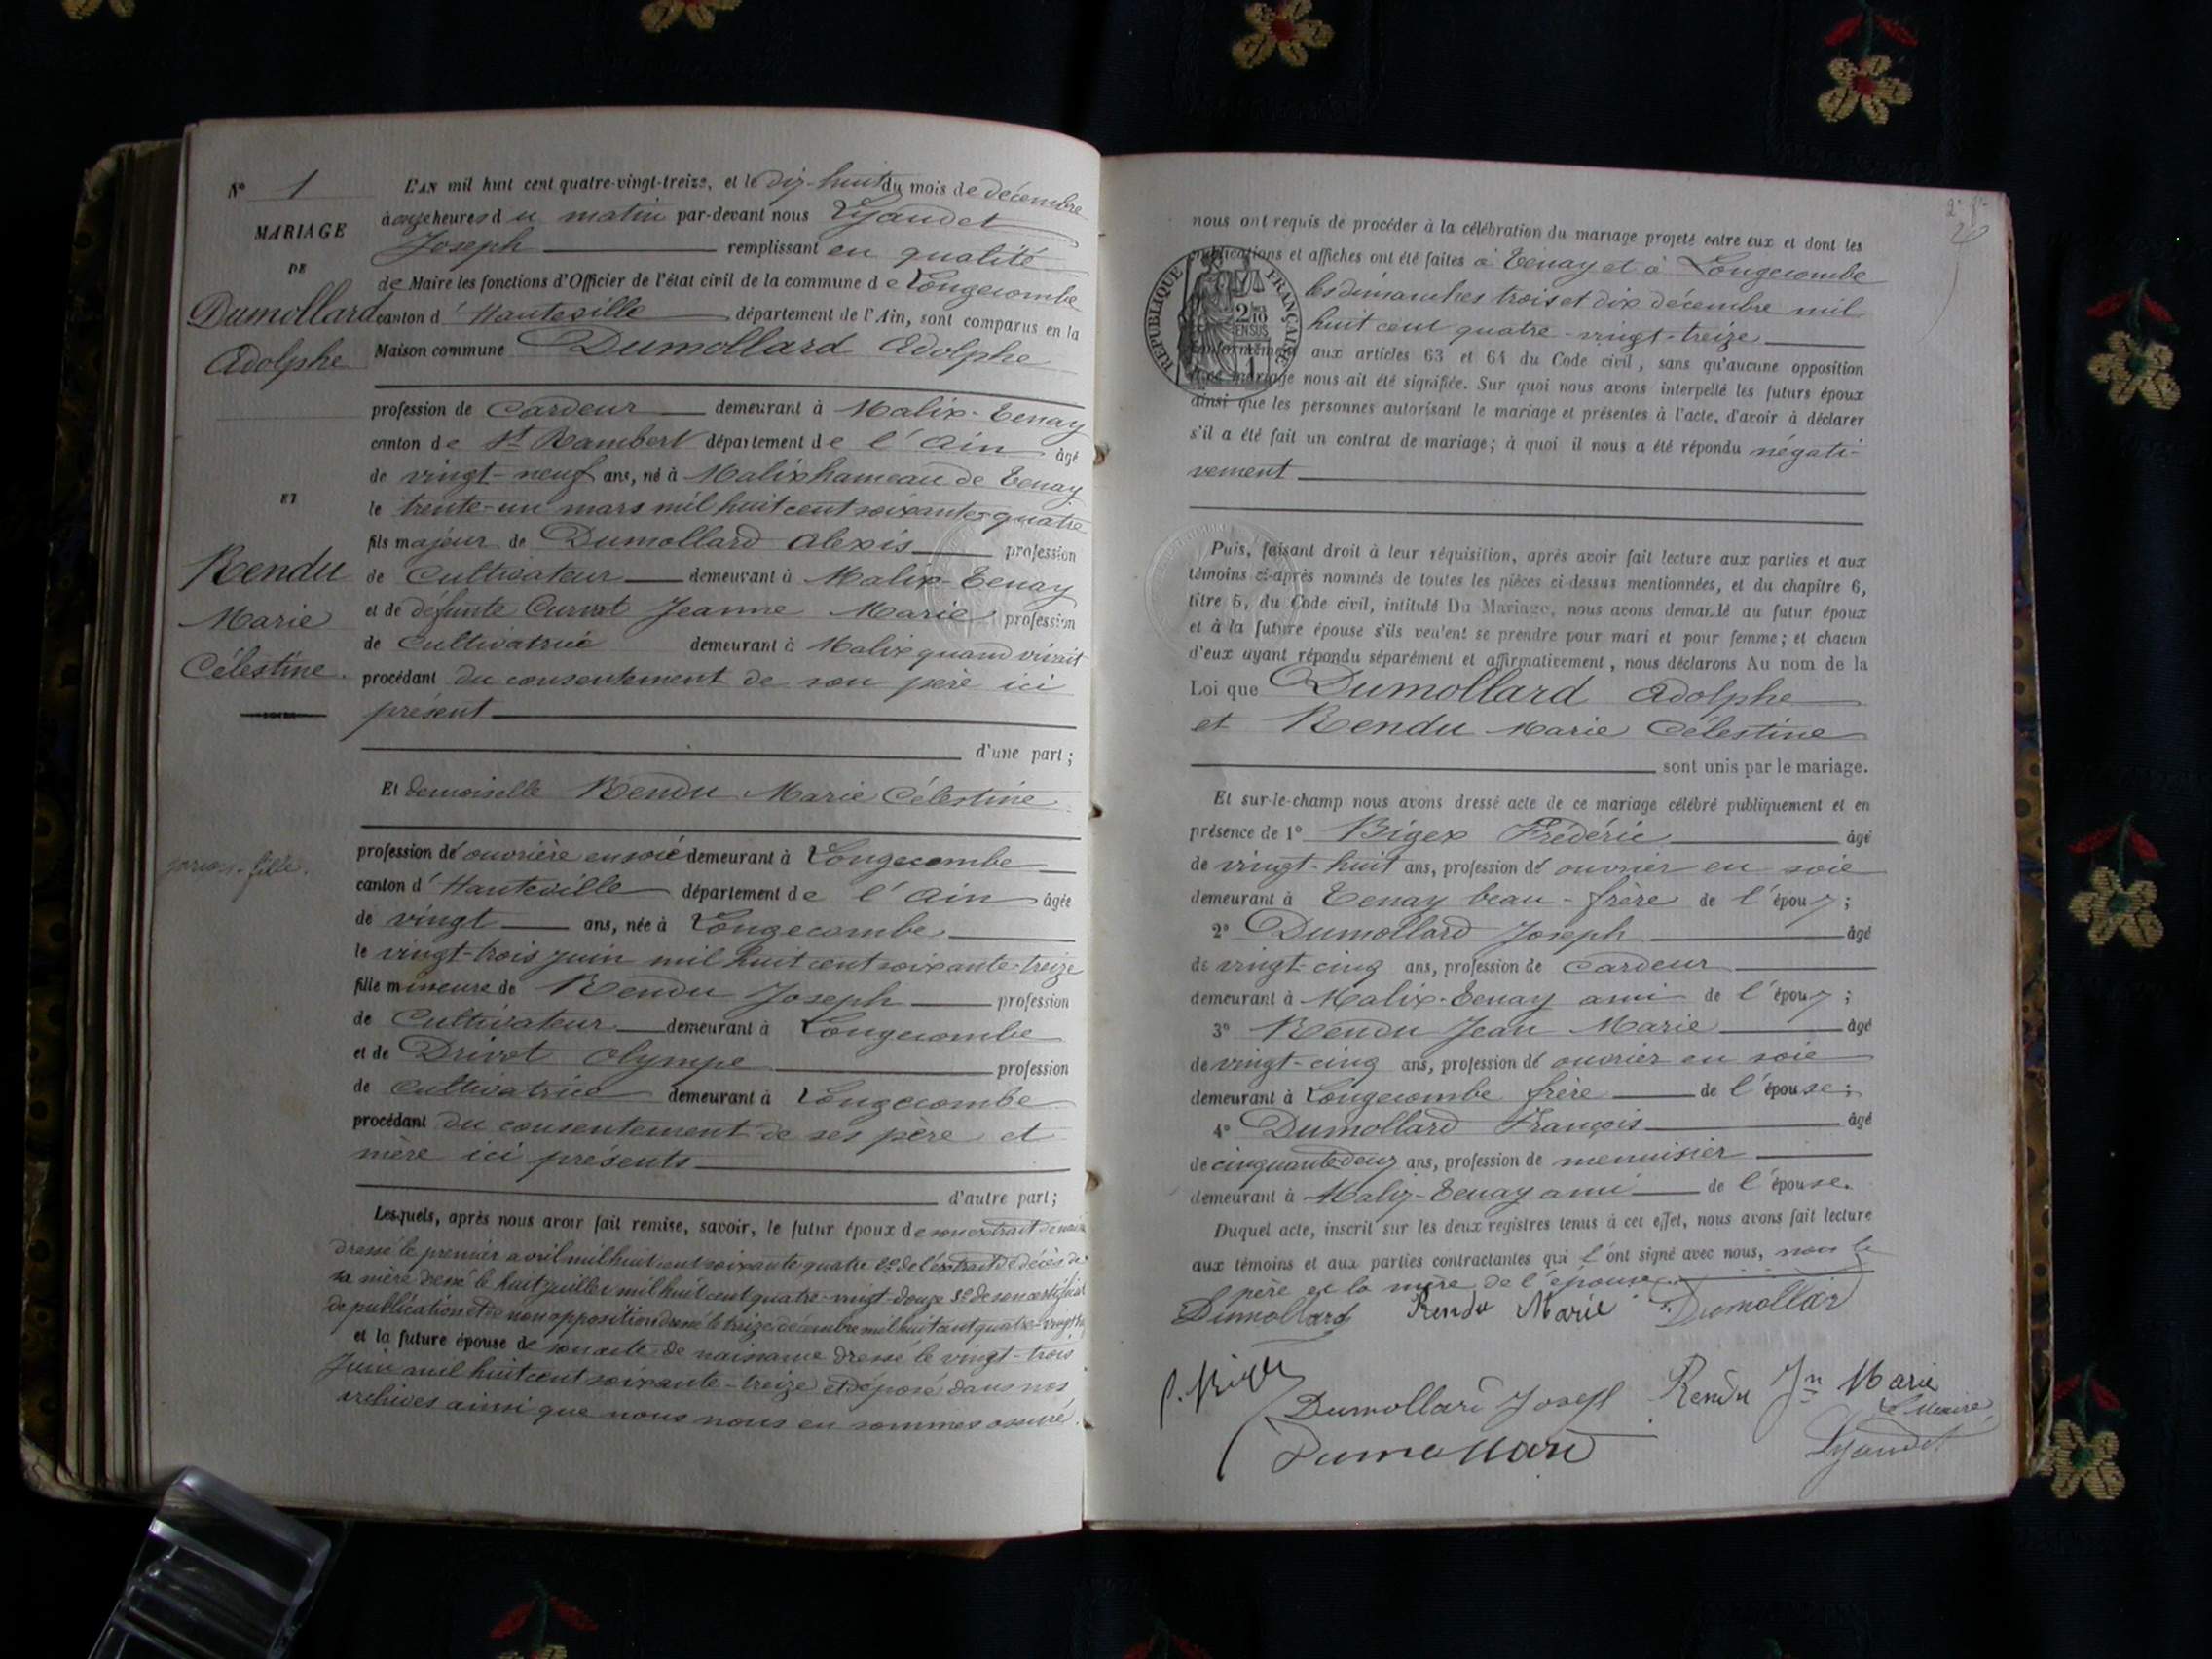 N° 1
MARIAGE
DE
Dumollard
Adolphe
ET
Rendu
Marie
Célestine.
garçon-fille.
L'AN mil huit cent quatre-vingt-treize, et le dix-huit du mois de décembre
à onze heures du matin par-devant nous Lyaudet
Joseph remplissant en qualité
de Maire les fonctions d'Officier de l'état civil de la commune de Longecombe
canton d'Hauteville département de l'Ain, sont comparus en la
Maison commune Dumollard Adolphe
profession de Cardeur demeurant à Malix-Tenay
canton de St Rambert département de l'Ain âgé
de vingt-neuf ans, né à Malix hameau de Tenay
le trente-un mars mil huit cent soixante-quatre
fils majeur de Dumollard Alexis profession
de Cultivateur demeurant à Malix-Tenay
et de défunte Curvat Jeanne Marie profession
de Cultivatrice demeurant à Malix quand vivait
procédant du consentement de son père ici
présent
d'une part;
Et demoiselle Rendu Marie Célestine
profession d'ouvrière en soie demeurant à Longecombe
canton d'Hauteville département de l'Ain âgée
de vingt ans, née à Longecombe
le vingt-trois juin mil huit cent soixante-treize
fille mineure de Rendu Joseph profession
de Cultivateur demeurant à Longecombe
et de Drivet Olympe profession
de cultivatrice demeurant à Longecombe
procédant du consentement de ses père et
mère ici présents
d'autre part;
Lesquels, après nous avoir fait remise, savoir, le futur époux de son extrait de
dressé le premier avril mil huit cent soixante quatre 2° de l'extrait de décès de
sa mère dressé le huit juillet mil huit cent quatre-vingt-douze 3° de son certificat
de publication et de non opposition dressé le treize décembre mil huit cent quatre-vingt
et la future épouse de son acte de naissance dressé le vingt-trois
Juin mil huit cent soixante-treize et déposé dans nos
archives ainsi que nous nous en sommes assuré.
nous ont requis de procéder à la célébration du mariage projeté entre eux et dont les
publications et affiches ont été faites à Tenay et à Longecombe
les dimanches trois et dix décembre mil
huit cent quatre-vingt-treize
conformément aux articles 63 et 64 du Code civil, sans qu'aucune opposition
à ce mariage nous ait été signifiée. Sur quoi nous avons interpellé les futurs époux
ainsi que les personnes autorisant le mariage et présentes à l'acte, d'avoir à déclarer
s'il a été fait un contrat de mariage; à quoi il nous a été répondu négati-
vement
RÉPUBLIQUE FRANÇAISE
2/10 EN SUS
Puis, faisant droit à leur réquisition, après avoir fait lecture aux parties et aux
témoins ci-après nommés de toutes les pièces ci-dessus mentionnées, et du chapitre 6,
titre 5, du Code civil, intitulé Du Mariage, nous avons demandé au futur époux
et à la future épouse s'ils veulent se prendre pour mari et pour femme; et chacun
d'eux ayant répondu séparément et affirmativement, nous déclarons Au nom de la
Loi que Dumollard Adolphe
et Rendu Marie Célestine
sont unis par le mariage.
Et sur-le-champ nous avons dressé acte de ce mariage célébré publiquement et en
présence de 1° Bigex Frédéric âgé
de vingt-huit ans, profession d'ouvrier en soie
demeurant à Tenay beau-frère de l'époux;
2° Dumollard Joseph âgé
de vingt-cinq ans, profession de Cardeur
demeurant à Malix-Tenay ami de l'époux;
3° Rendu Jean Marie âgé
de vingt-cinq ans, profession d'ouvrier en soie
demeurant à Longecombe frère de l'épouse;
4° Dumollard François âgé
de cinquante-deux ans, profession de menuisier
demeurant à Malix-Tenay ami de l'épouse.
Duquel acte, inscrit sur les deux registres tenus à cet effet, nous avons fait lecture
aux témoins et aux parties contractantes qui l'ont signé avec nous, non le
père et la mère de l'épouse.
Dumollard Rendu Marie Dumollard
Dumollard Joseph Rendu Jn Marie
Le Maire
Dumollard Lyaudet